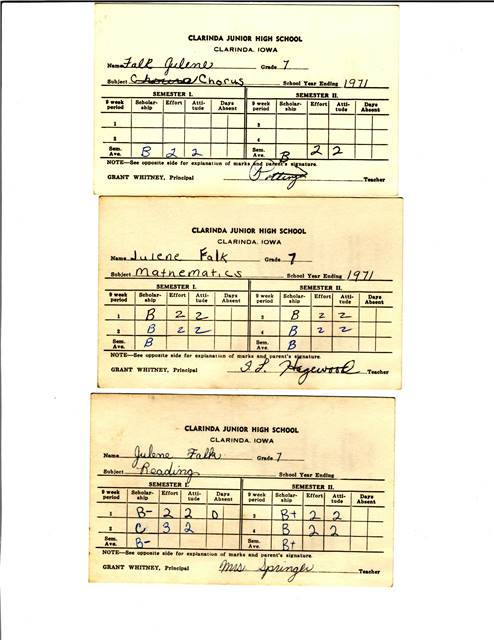 CLARINDA JUNIOR HIGH SCHOOL
CLARINDA, IOWA
Name Falk Julene Grade 7
Subject Chorus School Year Ending 1971
SEMESTER I. SEMESTER II.
9 week period Scholar-ship Effort Atti-tude Days Absent 9 week period Scholar-ship Effort Atti-tude Days Absent
1 3
2 4
Sem. Ave. B 2 2 Sem. Ave. B 2 2
NOTE—See opposite side for explanation of marks and parent's signature.
GRANT WHITNEY, Principal Teacher
CLARINDA JUNIOR HIGH SCHOOL
CLARINDA, IOWA
Name Julene Falk Grade 7
Subject Mathematics School Year Ending 1971
SEMESTER I. SEMESTER II.
9 week period Scholar-ship Effort Atti-tude Days Absent 9 week period Scholar-ship Effort Atti-tude Days Absent
1 B 2 2 3 B 2 2
2 B 2 2 4 B 2 2
Sem. Ave. B Sem. Ave. B
NOTE—See opposite side for explanation of marks and parent's signature.
GRANT WHITNEY, Principal I. L. Hagewood Teacher
CLARINDA JUNIOR HIGH SCHOOL
CLARINDA, IOWA
Name Julene Falk Grade 7
Subject Reading School Year Ending
SEMESTER I. SEMESTER II.
9 week period Scholar-ship Effort Atti-tude Days Absent 9 week period Scholar-ship Effort Atti-tude Days Absent
1 B- 2 2 0 3 B+ 2 2
2 C 3 2 4 B 2 2
Sem. Ave. B- Sem. Ave. B+
NOTE—See opposite side for explanation of marks and parent's signature.
GRANT WHITNEY, Principal Mrs Springer Teacher